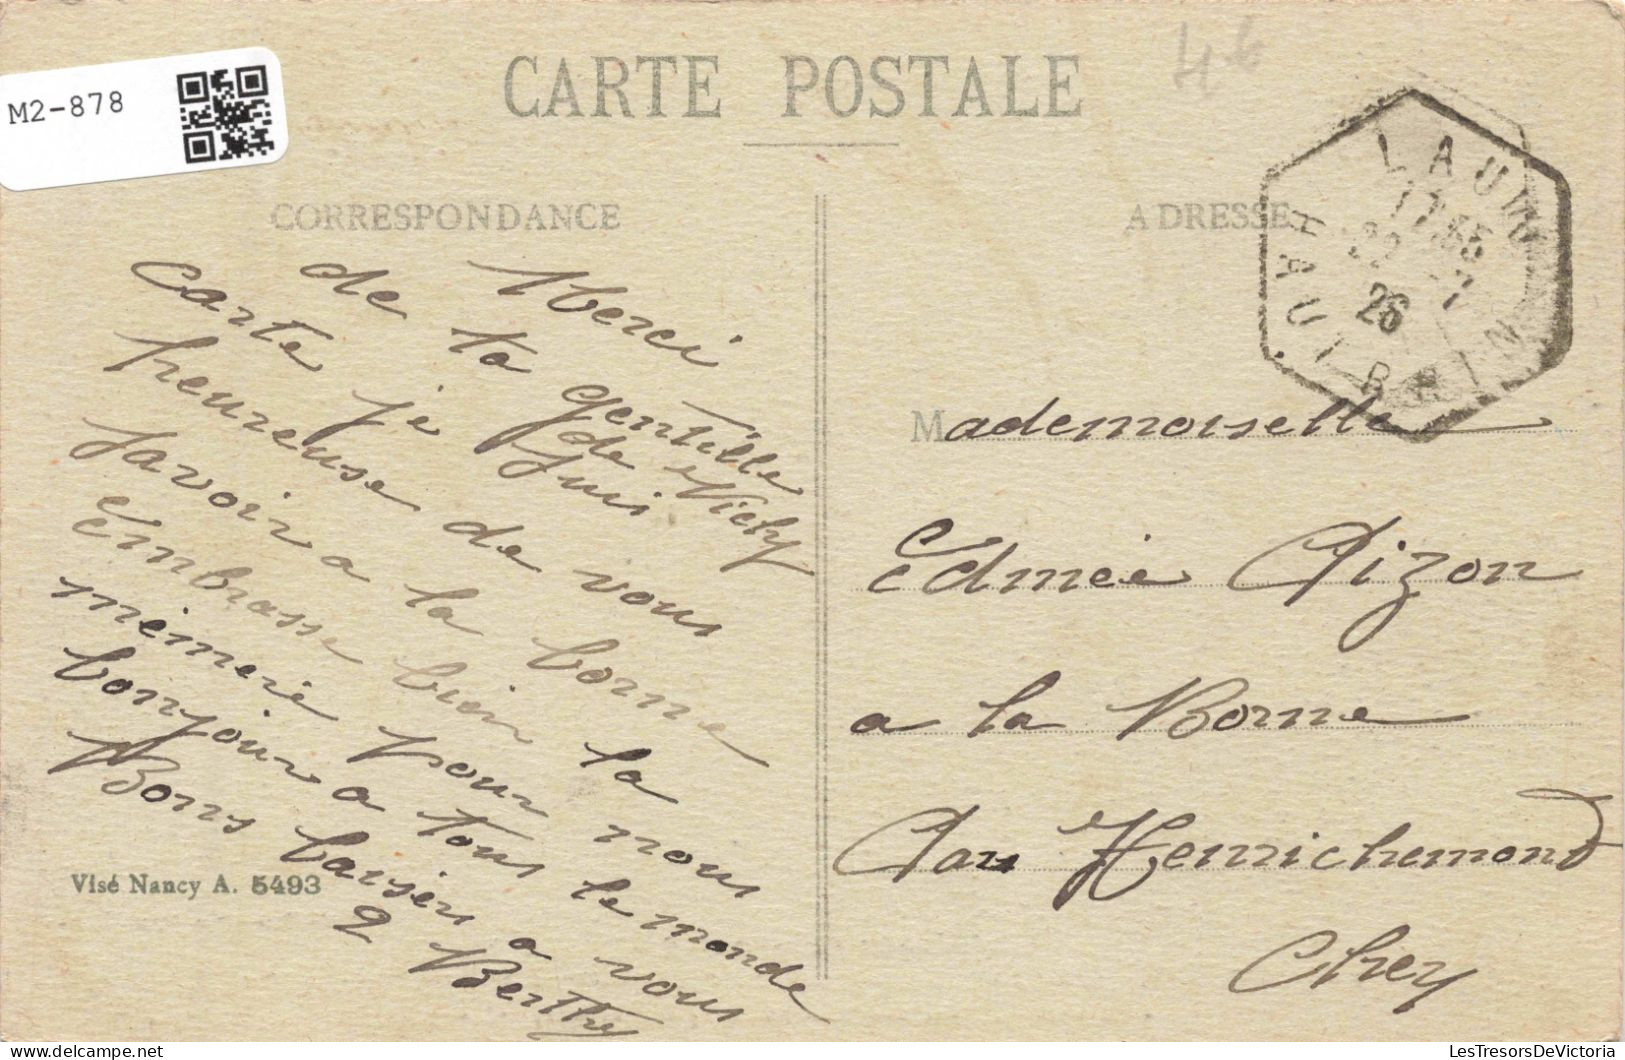 M2-878
4€
CARTE POSTALE
CORRESPONDANCE
ADRESSE
LAUW
17 35
22 -7
26
HAUT RHIN
Merci
de ta gentille
carte de Vichy
je suis
heureuse de vous
savoir a la borne
Embrasse bien la
mémere pour nous
bonjour a tous le monde
Bons baisers a vous
2 Berthe
Mademoiselle
Edmée Pizon
a la Borne
Par Henrichemond
Cher
Visé Nancy A. 5493
delcampe.net
LesTresorsDeVictoria